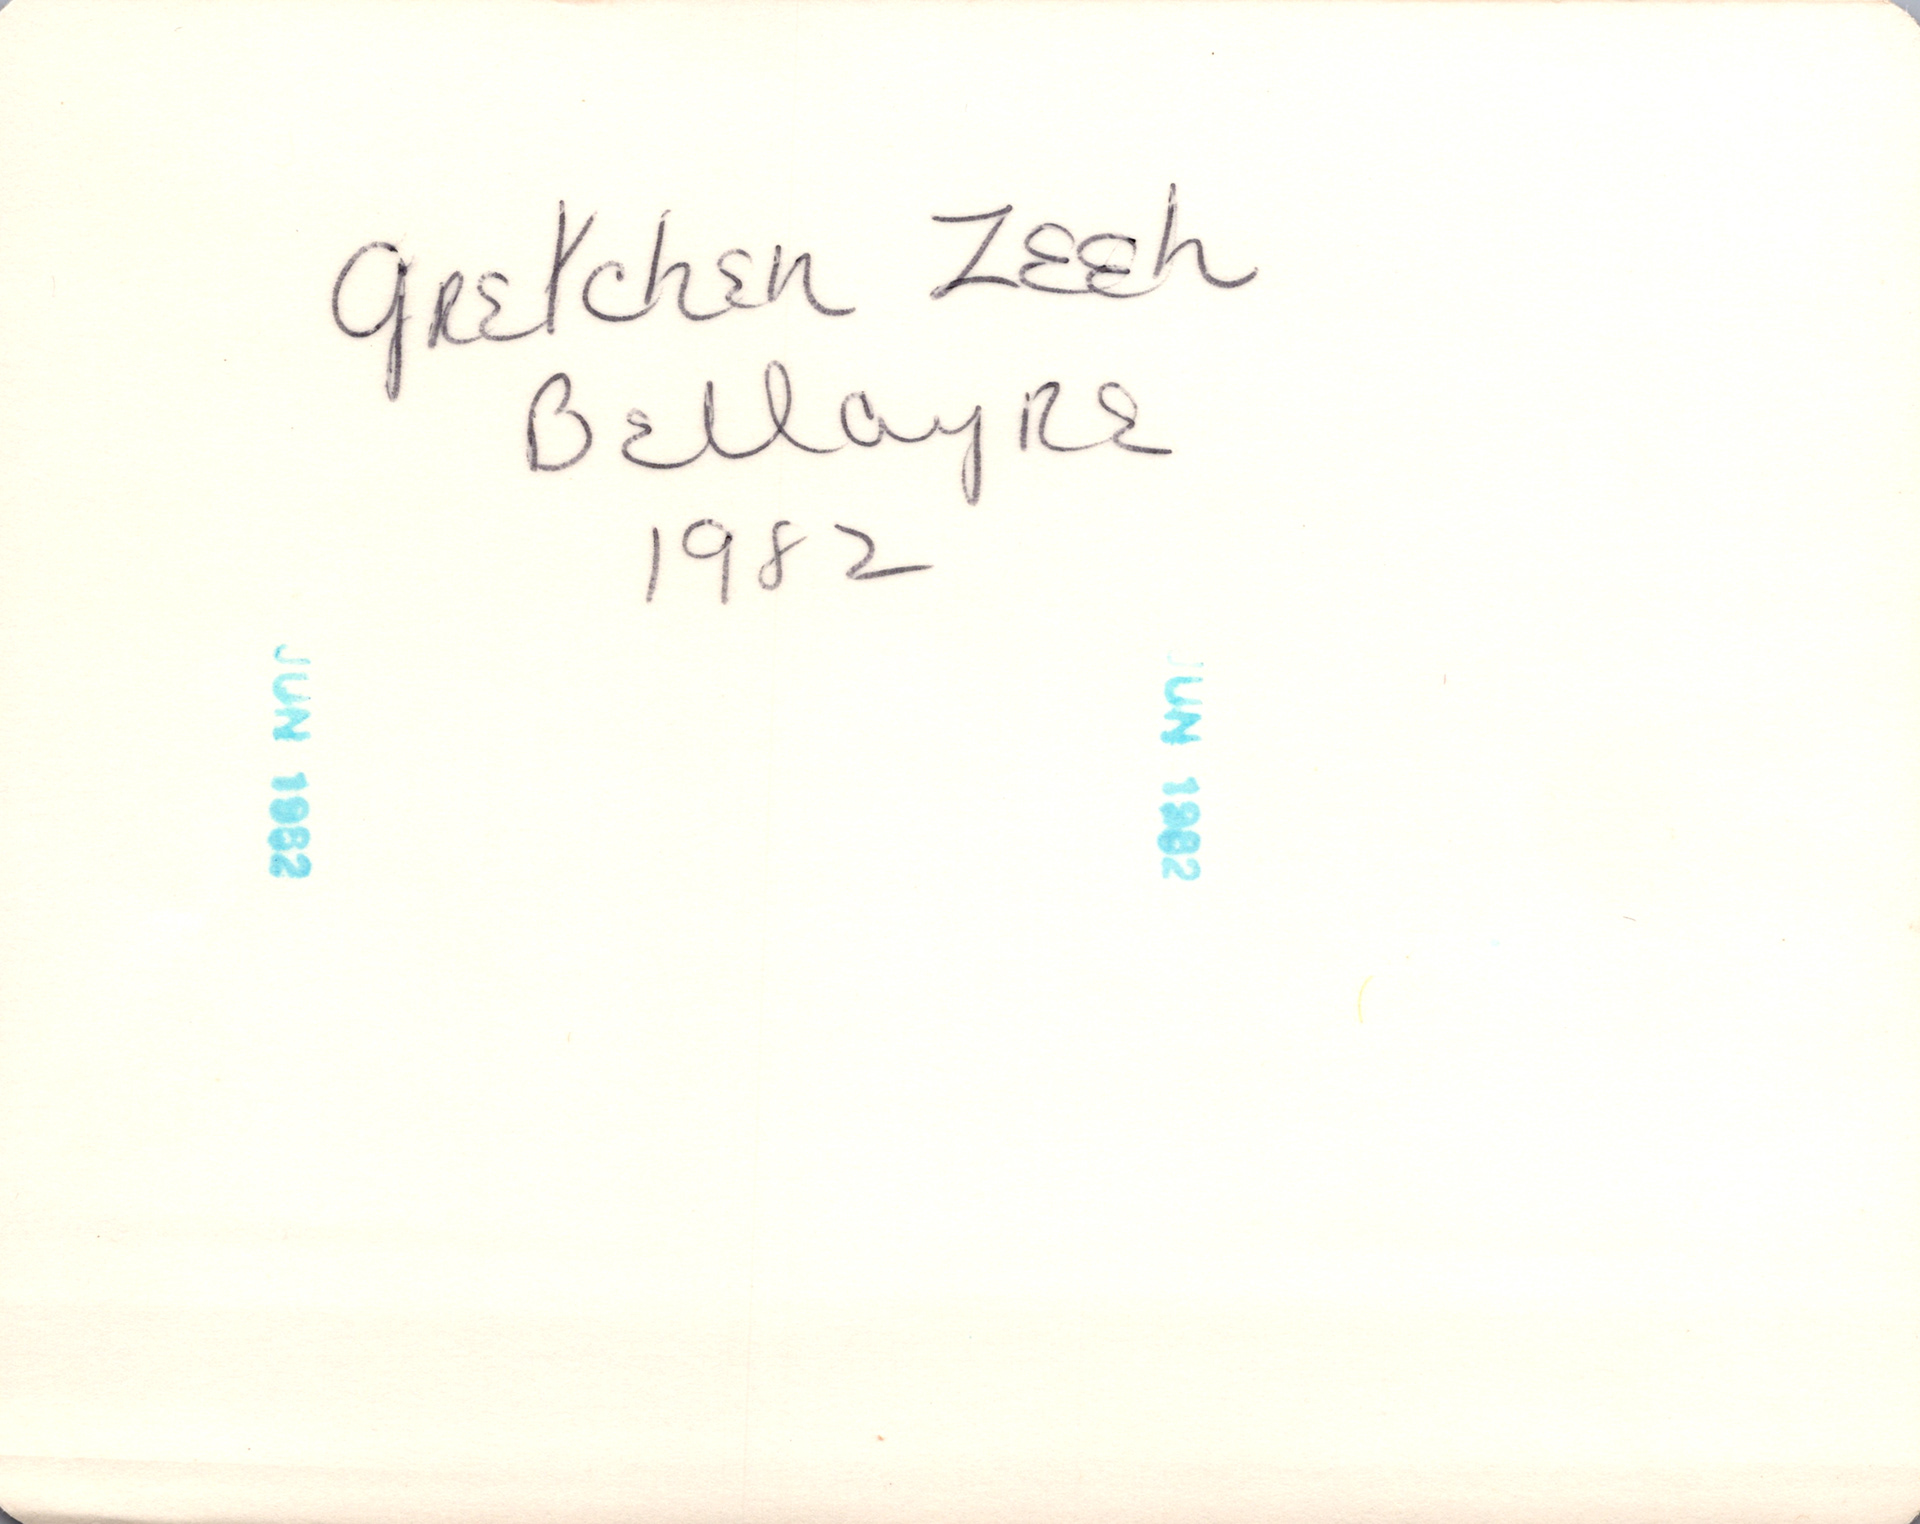 Gretchen Zeeh
Bellayre
1982
JUN 1982
JUN 1982